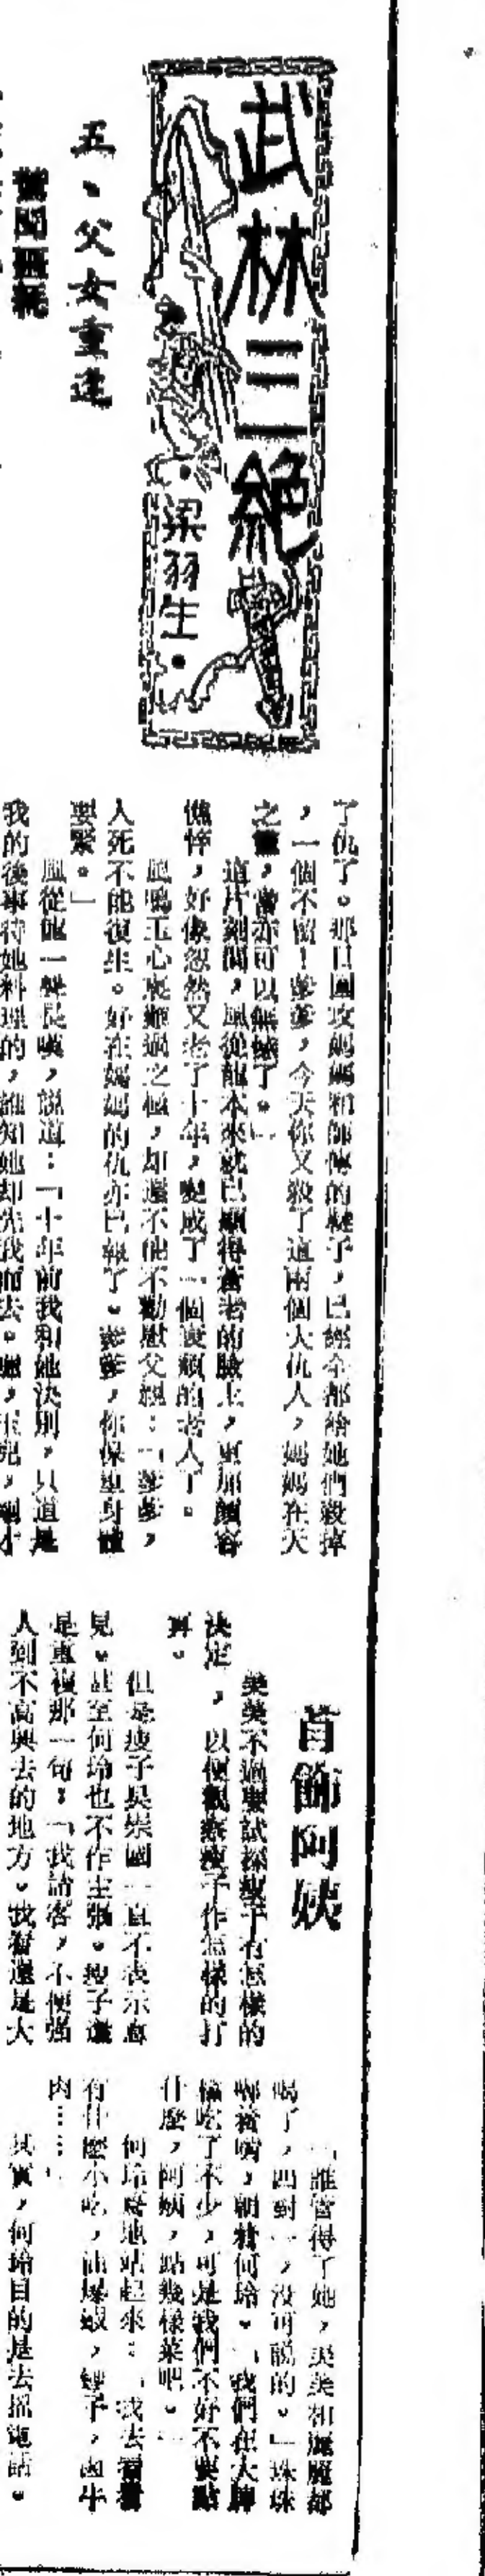 武林三絕
·梁羽生·
五、父女重逢
驚聞噩耗
了仇了。那日圍攻媽媽和師傅的韃子,已經全都給她們殺掉
,一個不留!爹爹,今天你又殺了這兩個大仇人,媽媽在天
之靈,當亦可以無憾了。」
這片刻間,風從龍本來就已顯得蒼老的臉上,更加顏容
憔悴,好像忽然又老了十年,變成了一個衰頹的老人了。
風鳴玉心裏難過之極,却還不能不勸慰父親:「爹爹,
人死不能復生。好在媽媽的仇亦已報了。爹爹,你保重身體
要緊。」
風從龍一聲長嘆,說道:「十年前我和她決別,只道是
我的後事待她料理的,誰知她却先我而去。唉,玉兒,剛才
首飾阿姨
美美不過要試探瘦子有怎樣的
決定,以便觀察瘦子作怎樣的打
算。
但是瘦子吳崇國一直不表示意
見。甚至何玲也不作主張。瘦子還
是重複那一句:「我請客,不便强
人到不高興去的地方。我看還是大
「誰管得了她,美美和麗麗都
喝了,四對一,没可說的。」珠珠
啣着嘴,朝着何玲。「我們在大牌
檔吃了不少,可是我們不好不要點
什麽,阿姨,點幾樣菜吧。」
何玲霍地站起來:「我去看看
有什麽小吃,油爆蝦,蟶子,鹵牛
肉……」
其實,何玲目的是去搖電話。